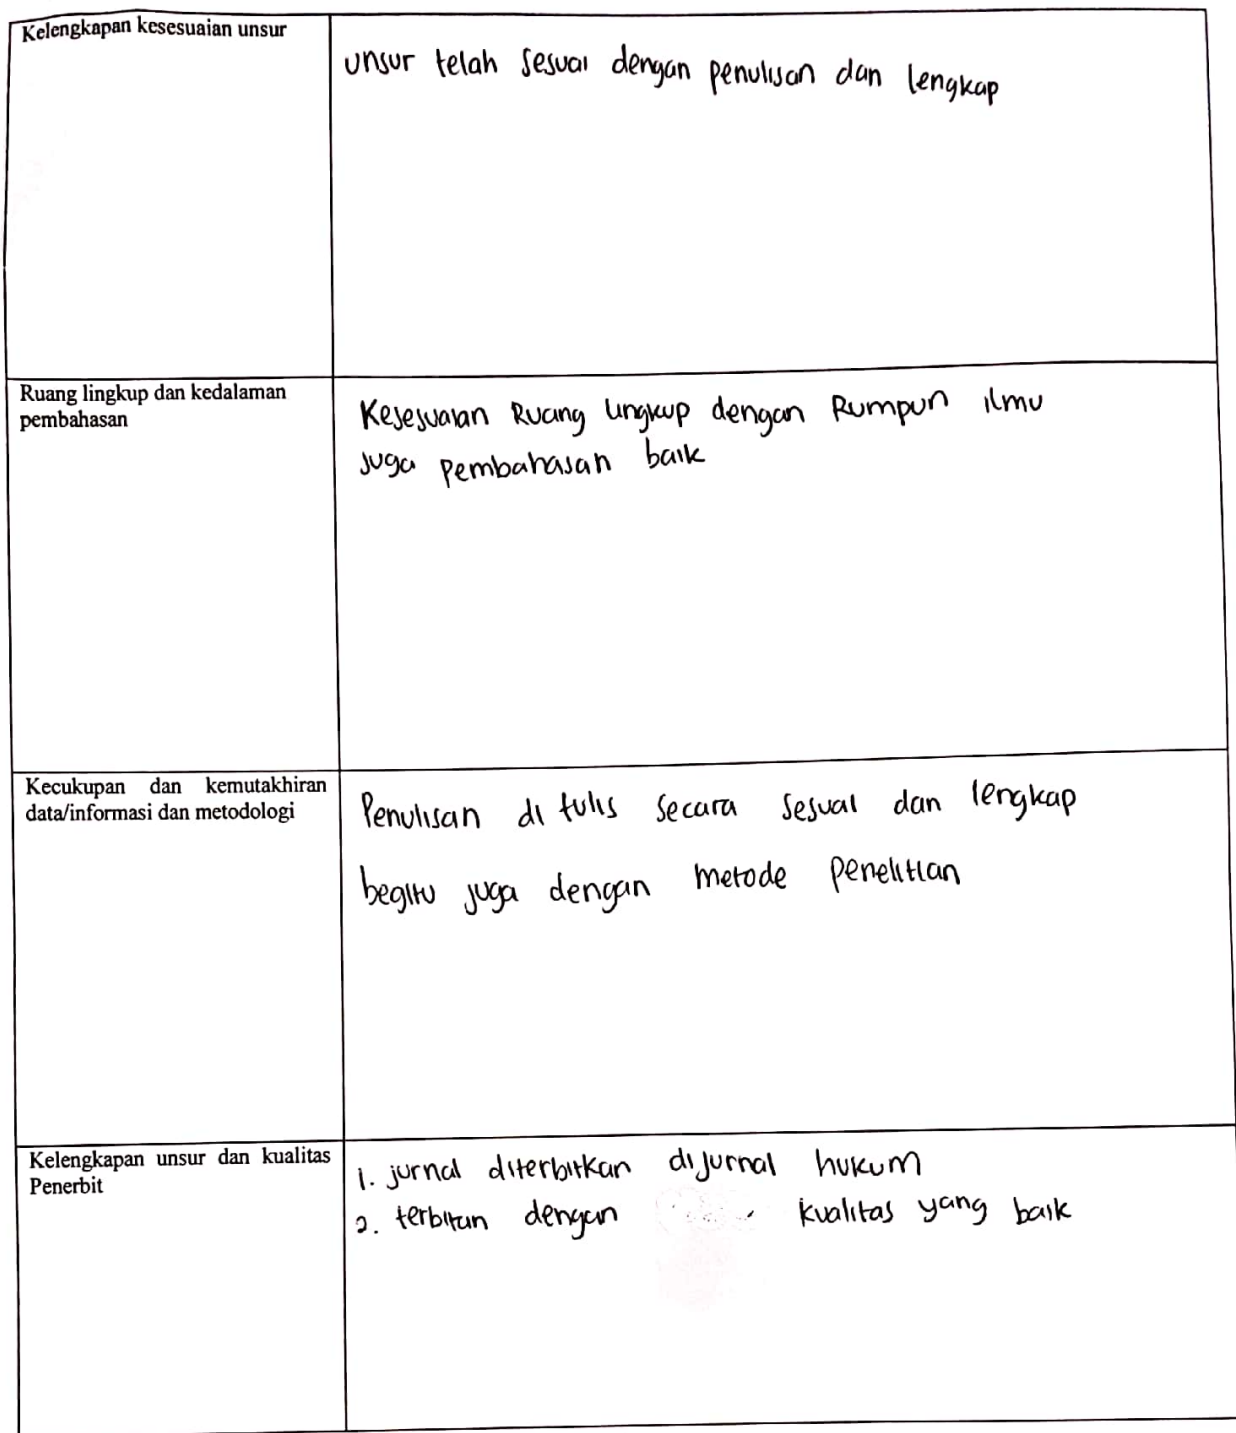 Kelengkapan kesesuaian unsur
unsur telah sesuai dengan penulisan dan lengkap
Ruang lingkup dan kedalaman
pembahasan
Kesesuaian Ruang lingkup dengan Rumpun ilmu
juga pembahasan baik
Kecukupan dan kemutakhiran
data/informasi dan metodologi
Penulisan di tulis secara sesuai dan lengkap
begitu juga dengan metode penelitian
Kelengkapan unsur dan kualitas
Penerbit
1. jurnal diterbitkan dijurnal hukum
2. terbitan dengan kualitas yang baik